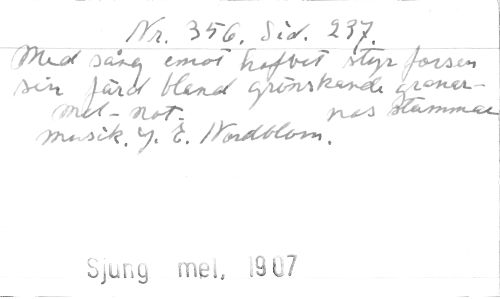 Nr. 356. Sid. 237.
Med sång emot hafvet styr forsen
sin färd bland grönskande granar-
mel-not. nas stammar
musik. J. E. Nordblom.
Sjung mel, 1907